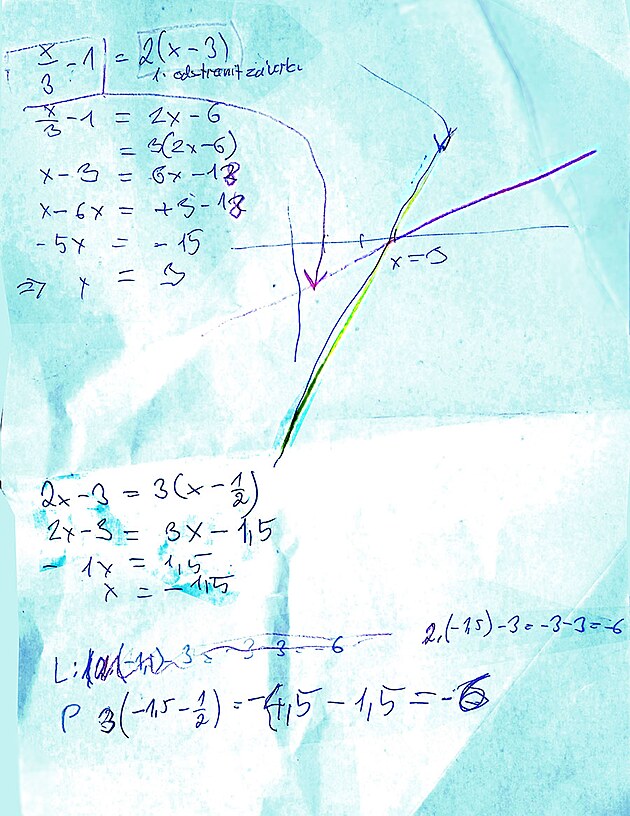 x/3 - 1 = 2(x - 3)
1. odstranit závorku
x/3 - 1 = 2x - 6
= 3(2x - 6)
x - 3 = 6x - 18
x - 6x = +3 - 18
-5x = -15
=> x = 3
x = 3
2x - 3 = 3(x - 1/2)
2x - 3 = 3x - 1,5
- 1x = 1,5
x = -1,5
2.(-1,5) - 3 = -3 - 3 = -6
L:
P 3(-1,5 - 1/2) = -4,5 - 1,5 = -6